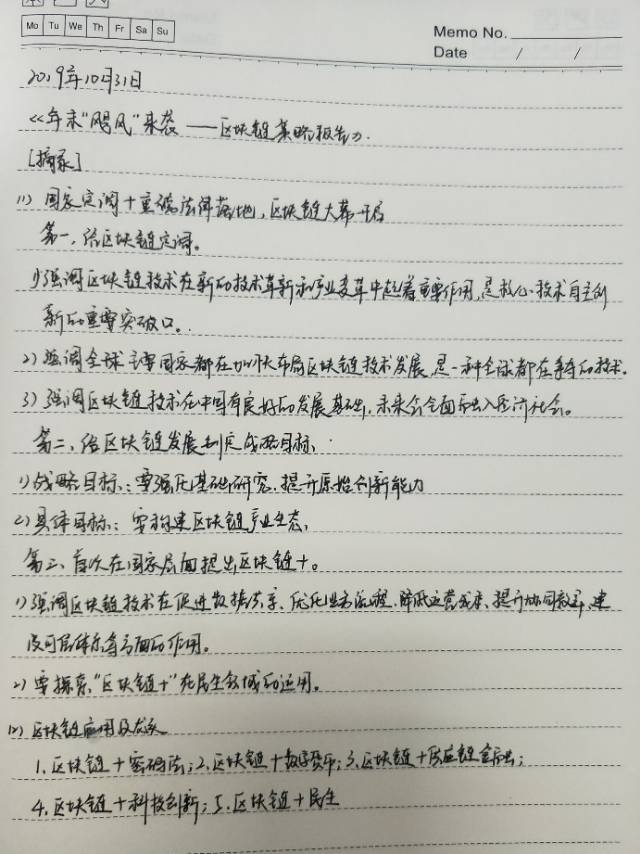 Mo Tu We Th Fr Sa Su
Memo No.
Date / /
2019年10月31日
《年末"飓风"来袭——区块链策略报告》.
[摘录]
(1) 国家定调+重磅法律落地,区块链大幕开启
第一,给区块链定调。
1)强调区块链技术在新的技术革新和产业变革中起着重要作用,是核心技术自主创
新的重要突破口。
2)强调全球主要国家都在加快布局区块链技术发展,是一种全球都在争夺的技术.
3)强调区块链技术在中国有良好的发展基础,未来会全面融入经济社会。
第二,给区块链发展制定战略目标、
1)战略目标:要强化基础研究.提升原始创新能力
2)具体目标:要构建区块链产业生态、
第三、首次在国家层面提出区块链+。
1)强调区块链技术在促进数据共享、优化业务流程.降低运营成本、提升协同效率、建
设可信体系等方面的作用。
2)要探索"区块链+"在民生领域的运用。
(2) 区块链应用及
1.区块链+密码法;2.区块链+数字货币;3.区块链+供应链金融;
4.区块链+科技创新;5.区块链+民生